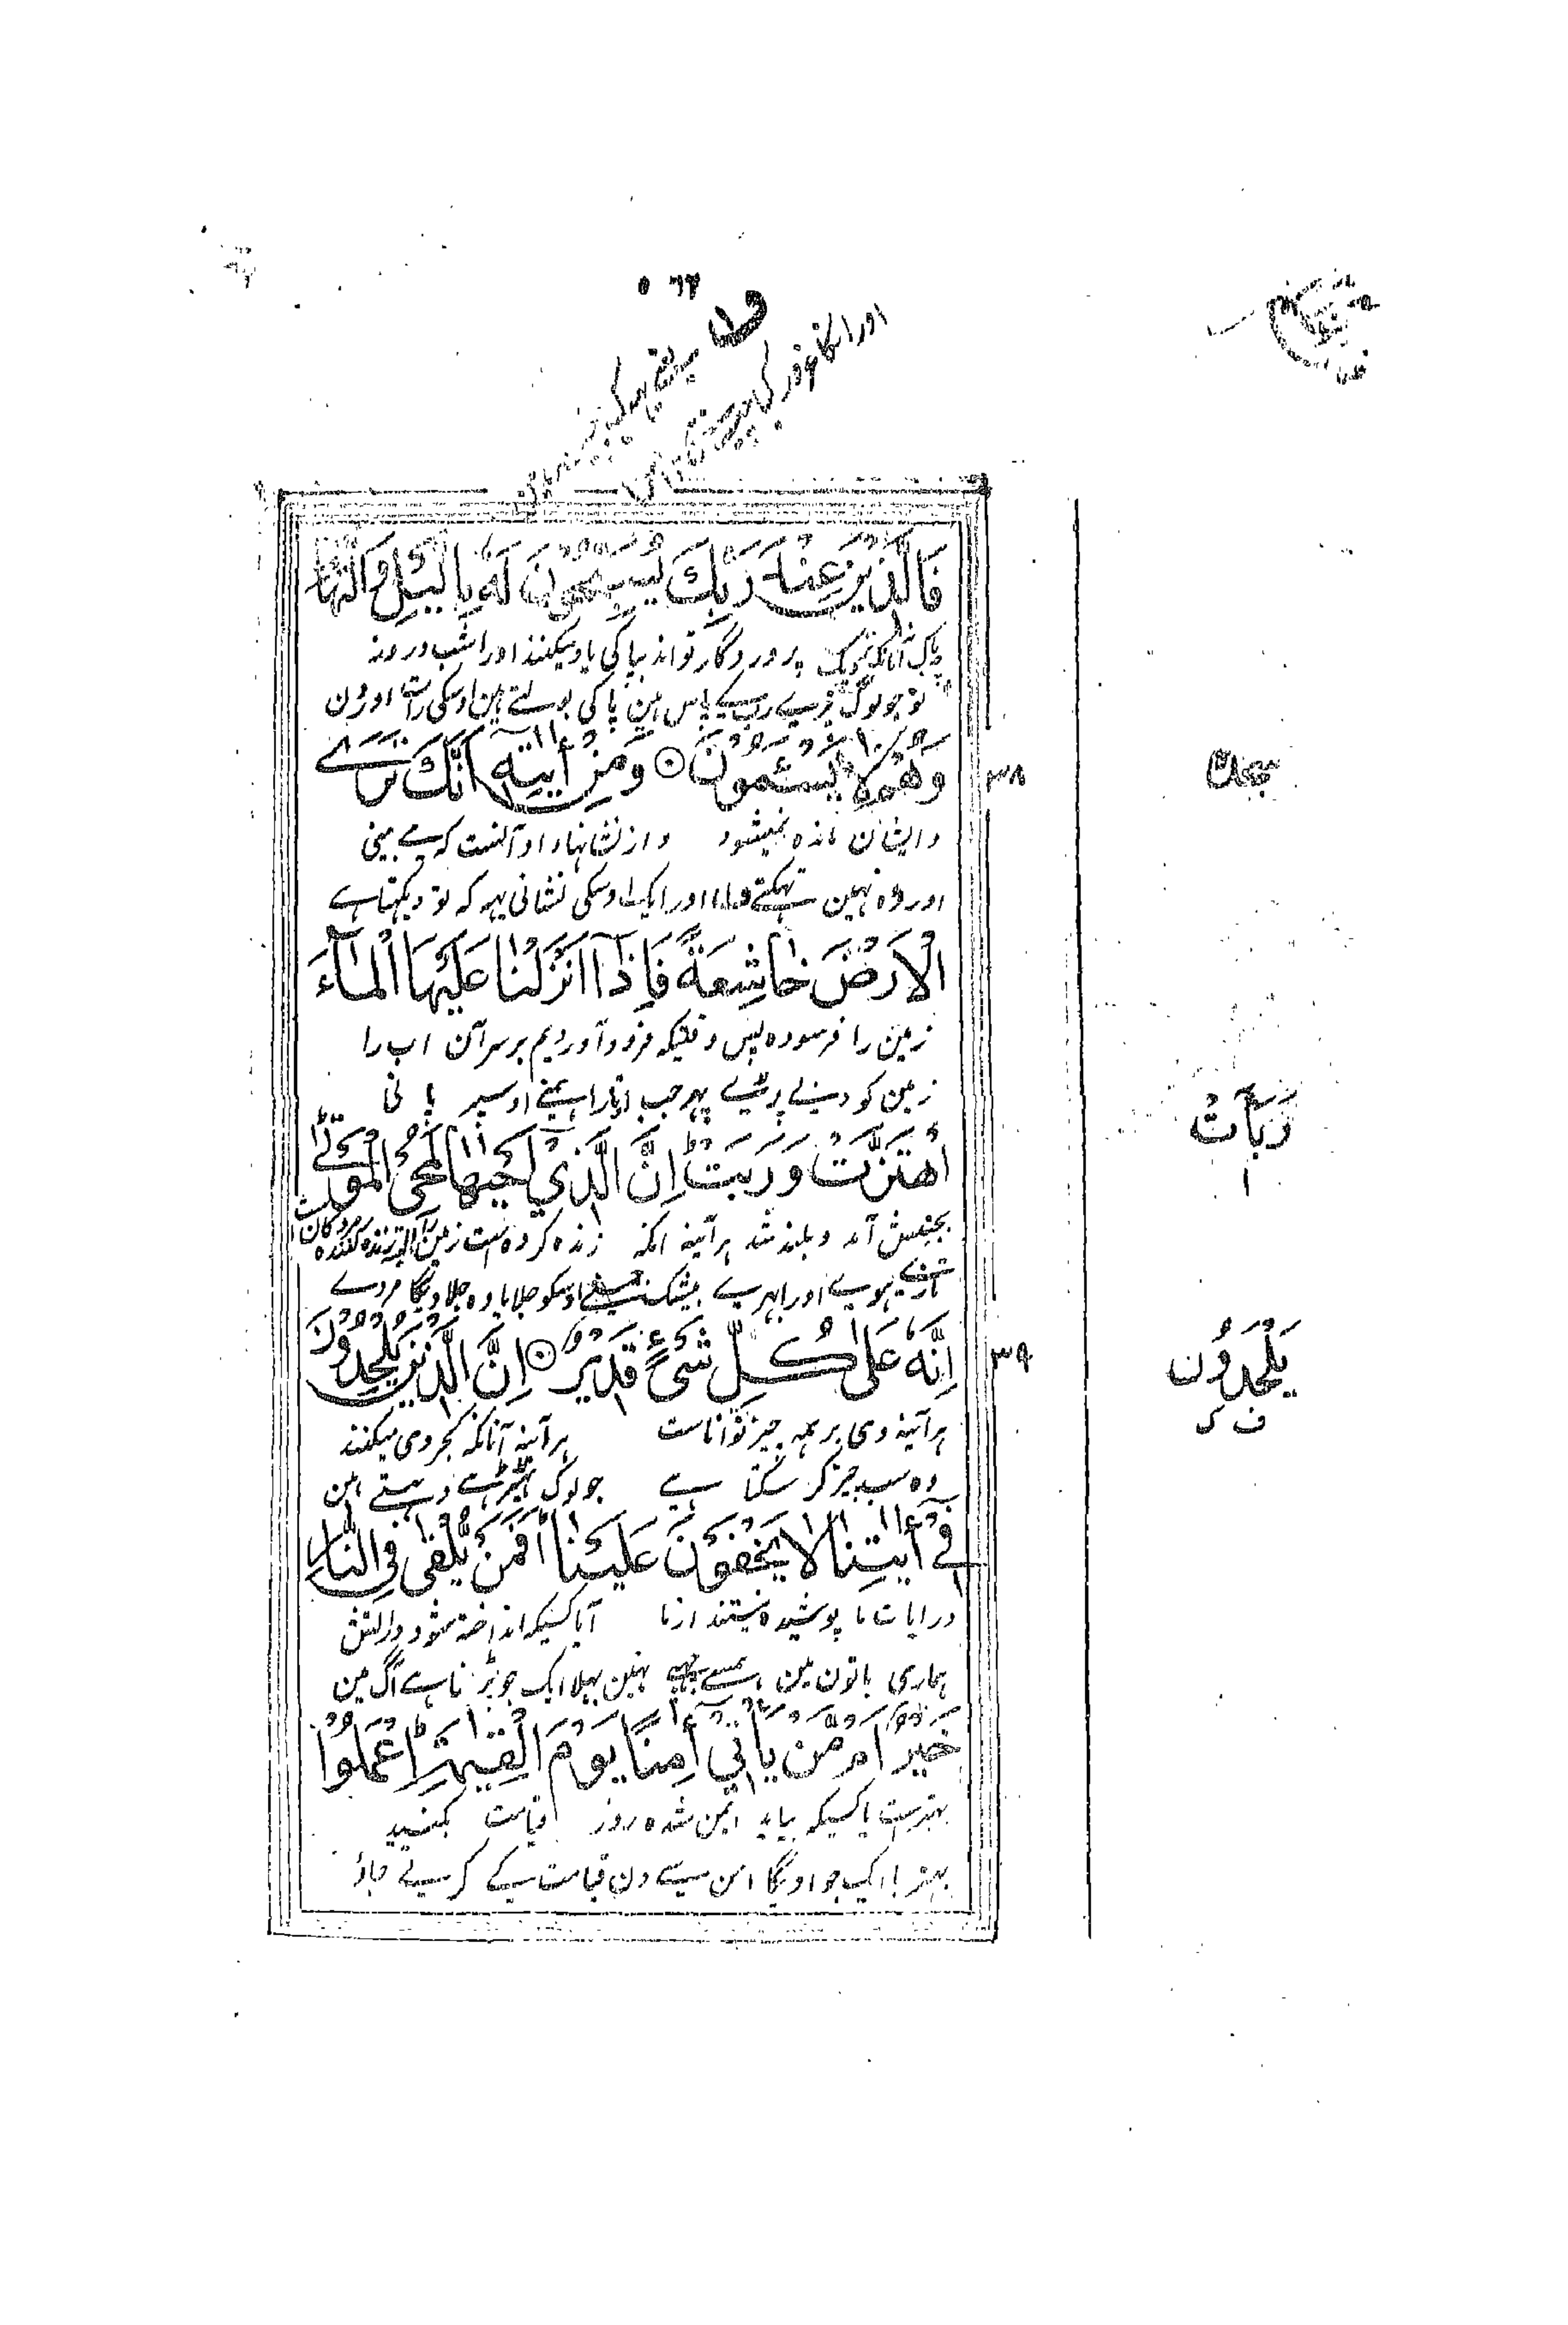 فَالَّذِيْنَ عِنْدَ رَبِّكَ يُسَبِّحُوْنَ لَهٗ بِالَّيْلِ وَالنَّهَارِ
آنانکہ نزدیک پروردگار تو اند بپاکی یاد میکنند اورا شب و روز
تو جو لوگ تیرے رب کے پاس ہین پاکی بولتے ہین اوسکی رات اور دن
وَهُمْ لَا يَسْـَٔمُوْنَ ۝ وَمِنْ اٰيٰتِهٖٓ اَنَّكَ تَرَے
۳۸
وایشان ماندہ نمیشود و از نشانہاء او آنست کہ مے بینی
اور وہ نہین تہکتے ف۱ اور ایک اوسکی نشانی یہہ کہ تو دیکہتا ہے
الْاَرْضَ خَاشِعَةً فَاِذَآ اَنْزَلْنَا عَلَيْهَا الْمَآءَ
زمین را فرسودہ پس وقتیکہ فرود آوردیم برسر آن اب را
زمین کو دبے پڑے پہر جب اوتارا ہمنے اوسپر پانی
رَبَاَتْ
۱
اهْتَزَّتْ وَرَبَتْ ؕ اِنَّ الَّذِيْٓ اَحْيَاهَا لَمُحْىِ الْمَوْتٰے ؕ
بجنبش آمد و بلند شد ہر آئینہ انکہ زندہ کردہ است زمین را البتہ زندہ کنندہ مردگان است
تازے ہوے اور ابہرے بیشک جسنے اوسکو جلایا وہ جلاویگا مردے
اِنَّهٗ عَلٰى كُلِّ شَىْءٍ قَدِيْرٌ ۝ اِنَّ الَّذِيْنَ يُلْحِدُوْنَ
۳۹
يَلْحَدُوْن
ف ک
ہر آئینہ وی بر ہمہ چیز توانا ست ہر آئینہ آنانکہ کجروی میکنند
وہ سب چیز کر سکتا ہے جو لوگ ٹیڑہے ہین
فِيْٓ اٰيٰتِنَا لَا يَخْفَوْنَ عَلَيْنَا ؕ اَفَمَنْ يُّلْقٰى فِى النَّارِ
در ایات ما پوشیدہ نیستند از ما آیا کسیکہ انداختہ شود در آتش
ہماری باتون مین ہمسے چہپے نہین بہلا ایک جو پڑنا ہے آگ مین
خَيْرٌ اَمْ مَّنْ يَّاْتِيْٓ اٰمِنًا يَّوْمَ الْقِيٰمَةِ ؕ اعْمَلُوْا
بہترست یا کسیکہ بیاید ایمن شدہ روز قیامت بکنید
بہتر یا ایک جو اویگا امن سے دن قیامت کے کرتے جاؤ